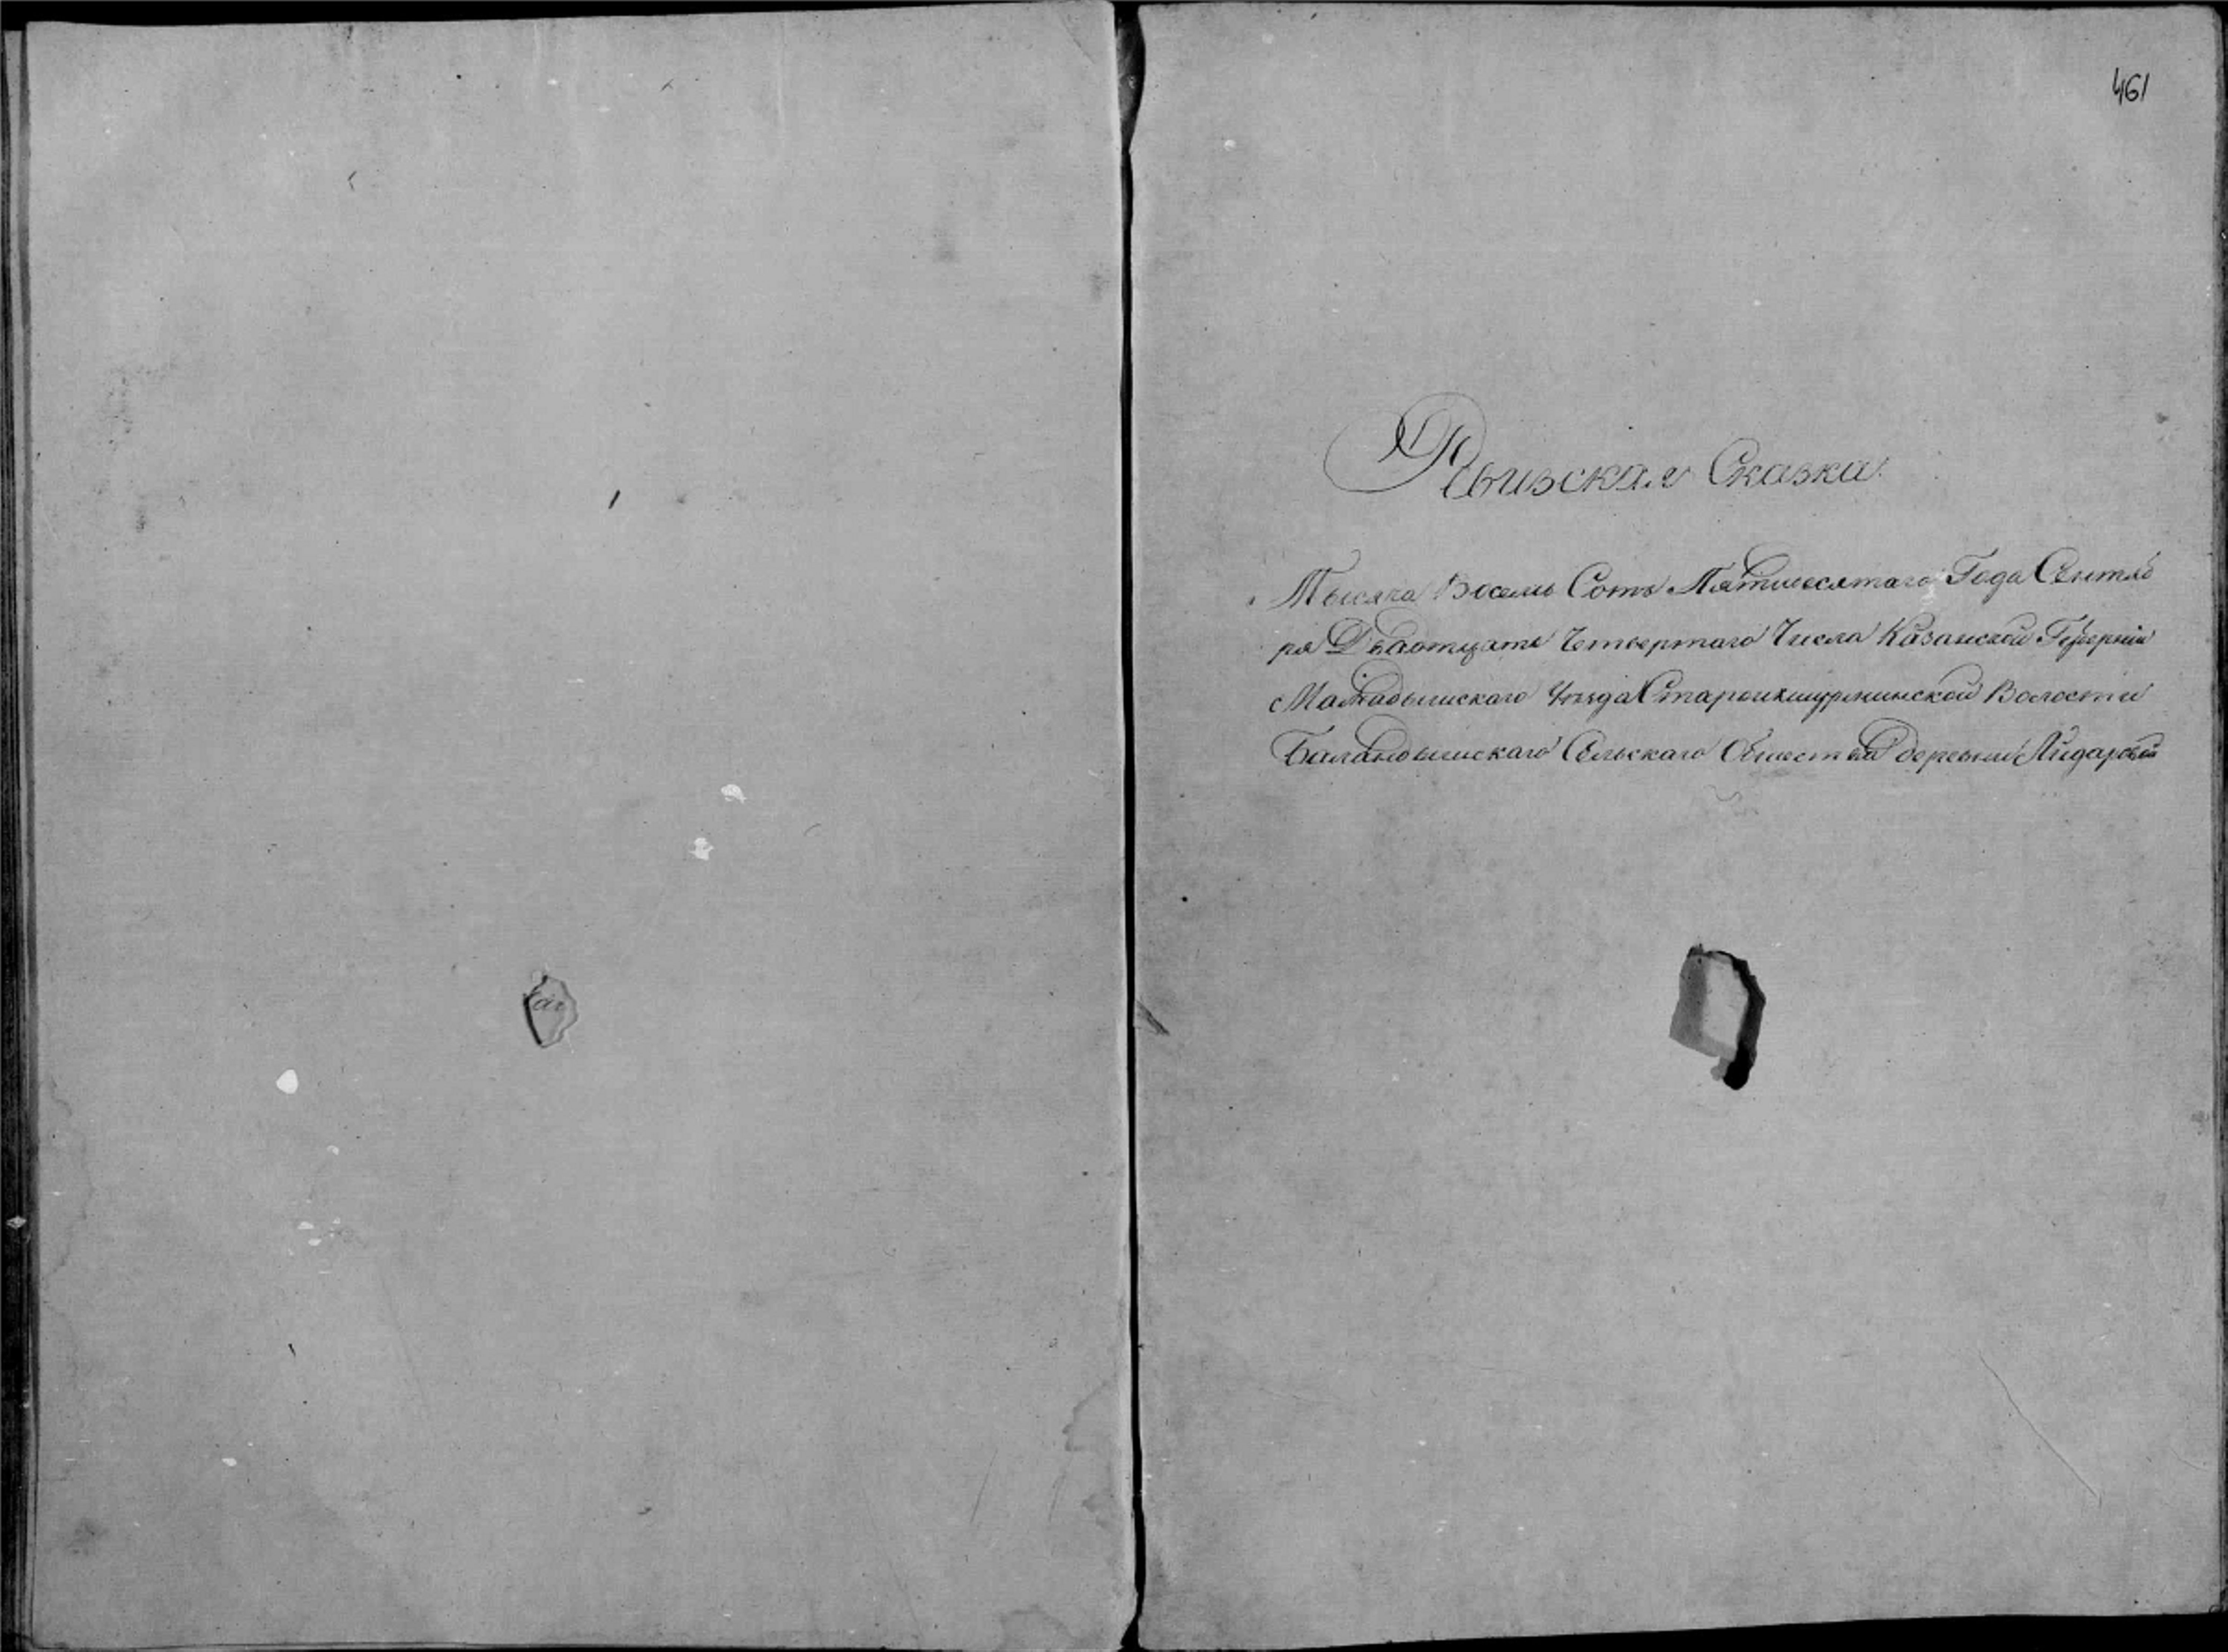 461
Ревизская Сказка.
Тысяча Восемь Сотъ Пятидесятаго Года Сентяб
ря Двадцать Четвертаго Числа Казанской Губернии
Мамадышскаго Уезда Староикшурминской Волости
Баландышскаго Сельскаго Общества деревни Айдаровой